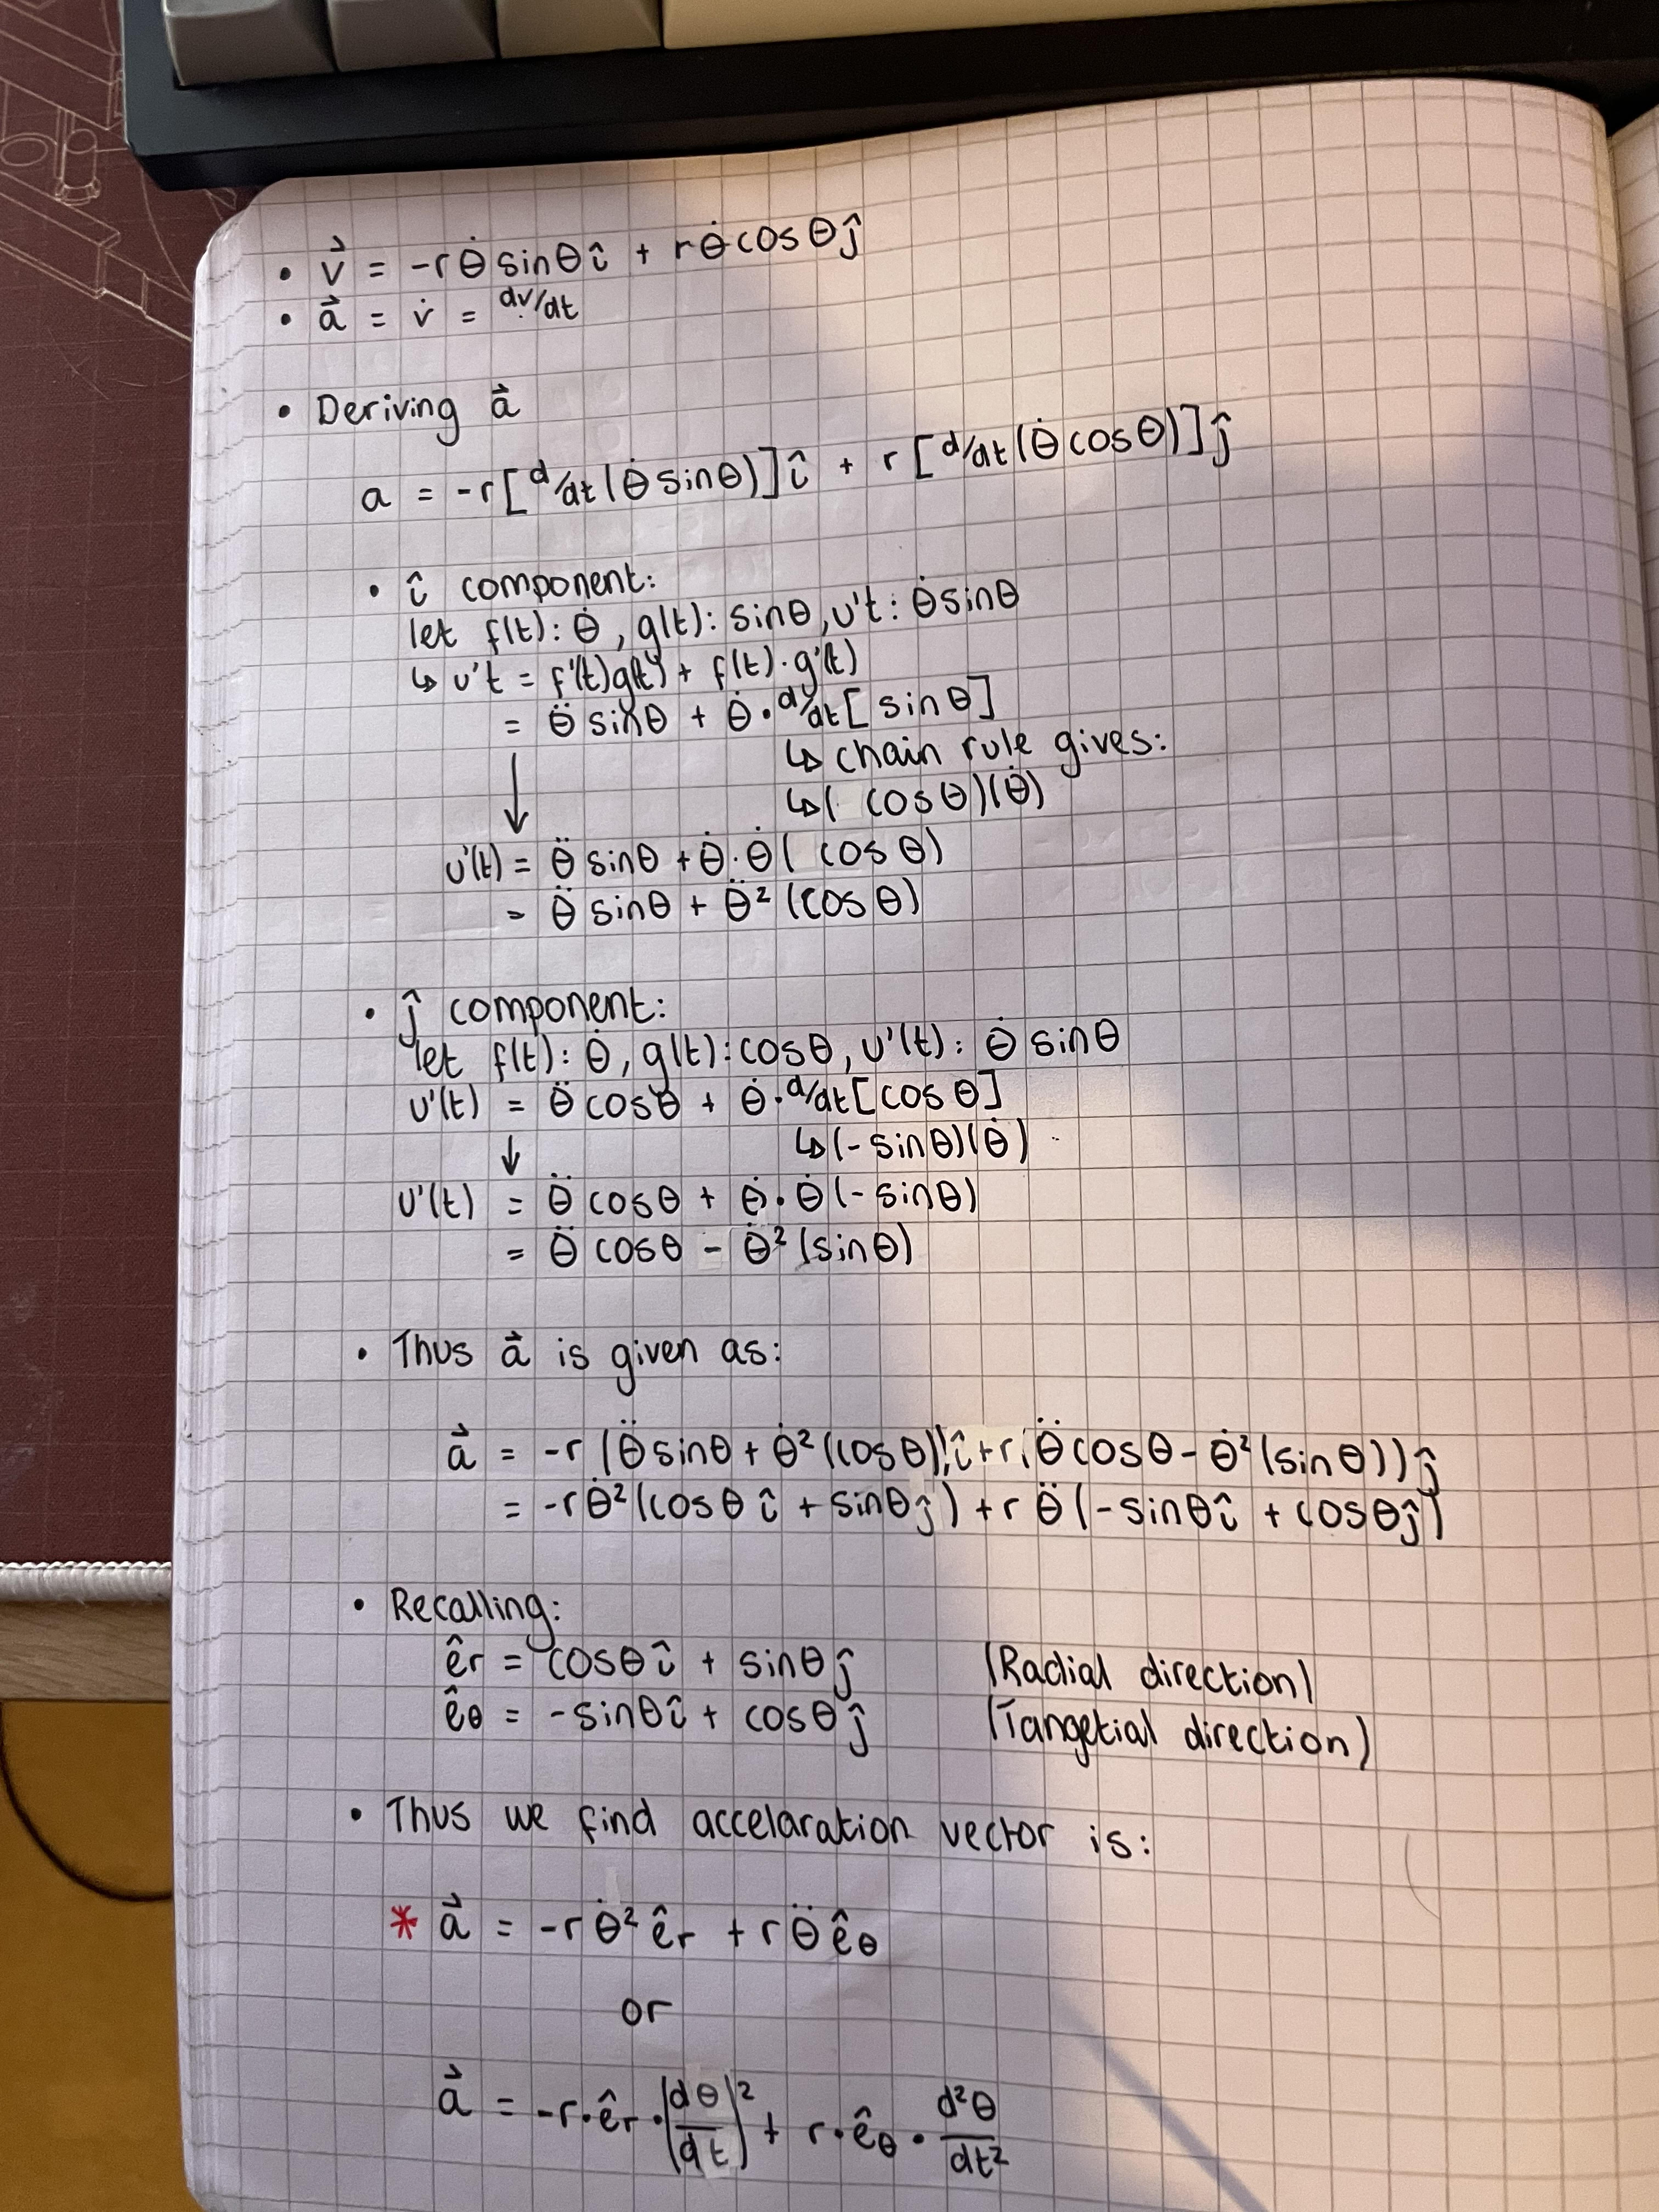 • v⃗ = -rθ̇ sinθ î + rθ̇ cosθ ĵ
• a⃗ = v̇ = dv/dt
• Deriving a⃗
a = -r[d/dt(θ̇ sinθ)]î + r[d/dt(θ̇ cosθ)]ĵ
• î component:
let f(t): θ̇, g(t): sinθ, u't: θ̇ sinθ
↳ u't = f'(t)g(t) + f(t)·g'(t)
= θ̈ sinθ + θ̇·d/dt[sinθ]
↳ chain rule gives:
↳( cosθ)(θ̇)
↓
u'(t) = θ̈ sinθ + θ̇·θ̇( cosθ)
= θ̈ sinθ + θ̈² (cosθ)
• ĵ component:
let f(t): θ̇, g(t): cosθ, u'(t): θ̇ sinθ
u'(t) = θ̈ cosθ + θ̇·d/dt[cosθ]
↓ ↳(-sinθ)(θ̇)
u'(t) = θ̈ cosθ + θ̇·θ̇(-sinθ)
= θ̈ cosθ - θ̇² (sinθ)
• Thus a⃗ is given as:
a⃗ = -r (θ̈ sinθ + θ̇² (cosθ))î + r(θ̈ cosθ - θ̇² (sinθ))ĵ
= -rθ̇² (cosθ î + sinθ ĵ) + r θ̈ (-sinθ î + cosθ ĵ)
• Recalling:
êr = cosθ î + sinθ ĵ (Radial direction)
êθ = -sinθ î + cosθ ĵ (Tangetial direction)
• Thus we find accelaration vector is:
* a⃗ = -rθ̇² êr + rθ̈ êθ
or
a⃗ = -r·êr·(dθ/dt)² + r·êθ·d²θ/dt²